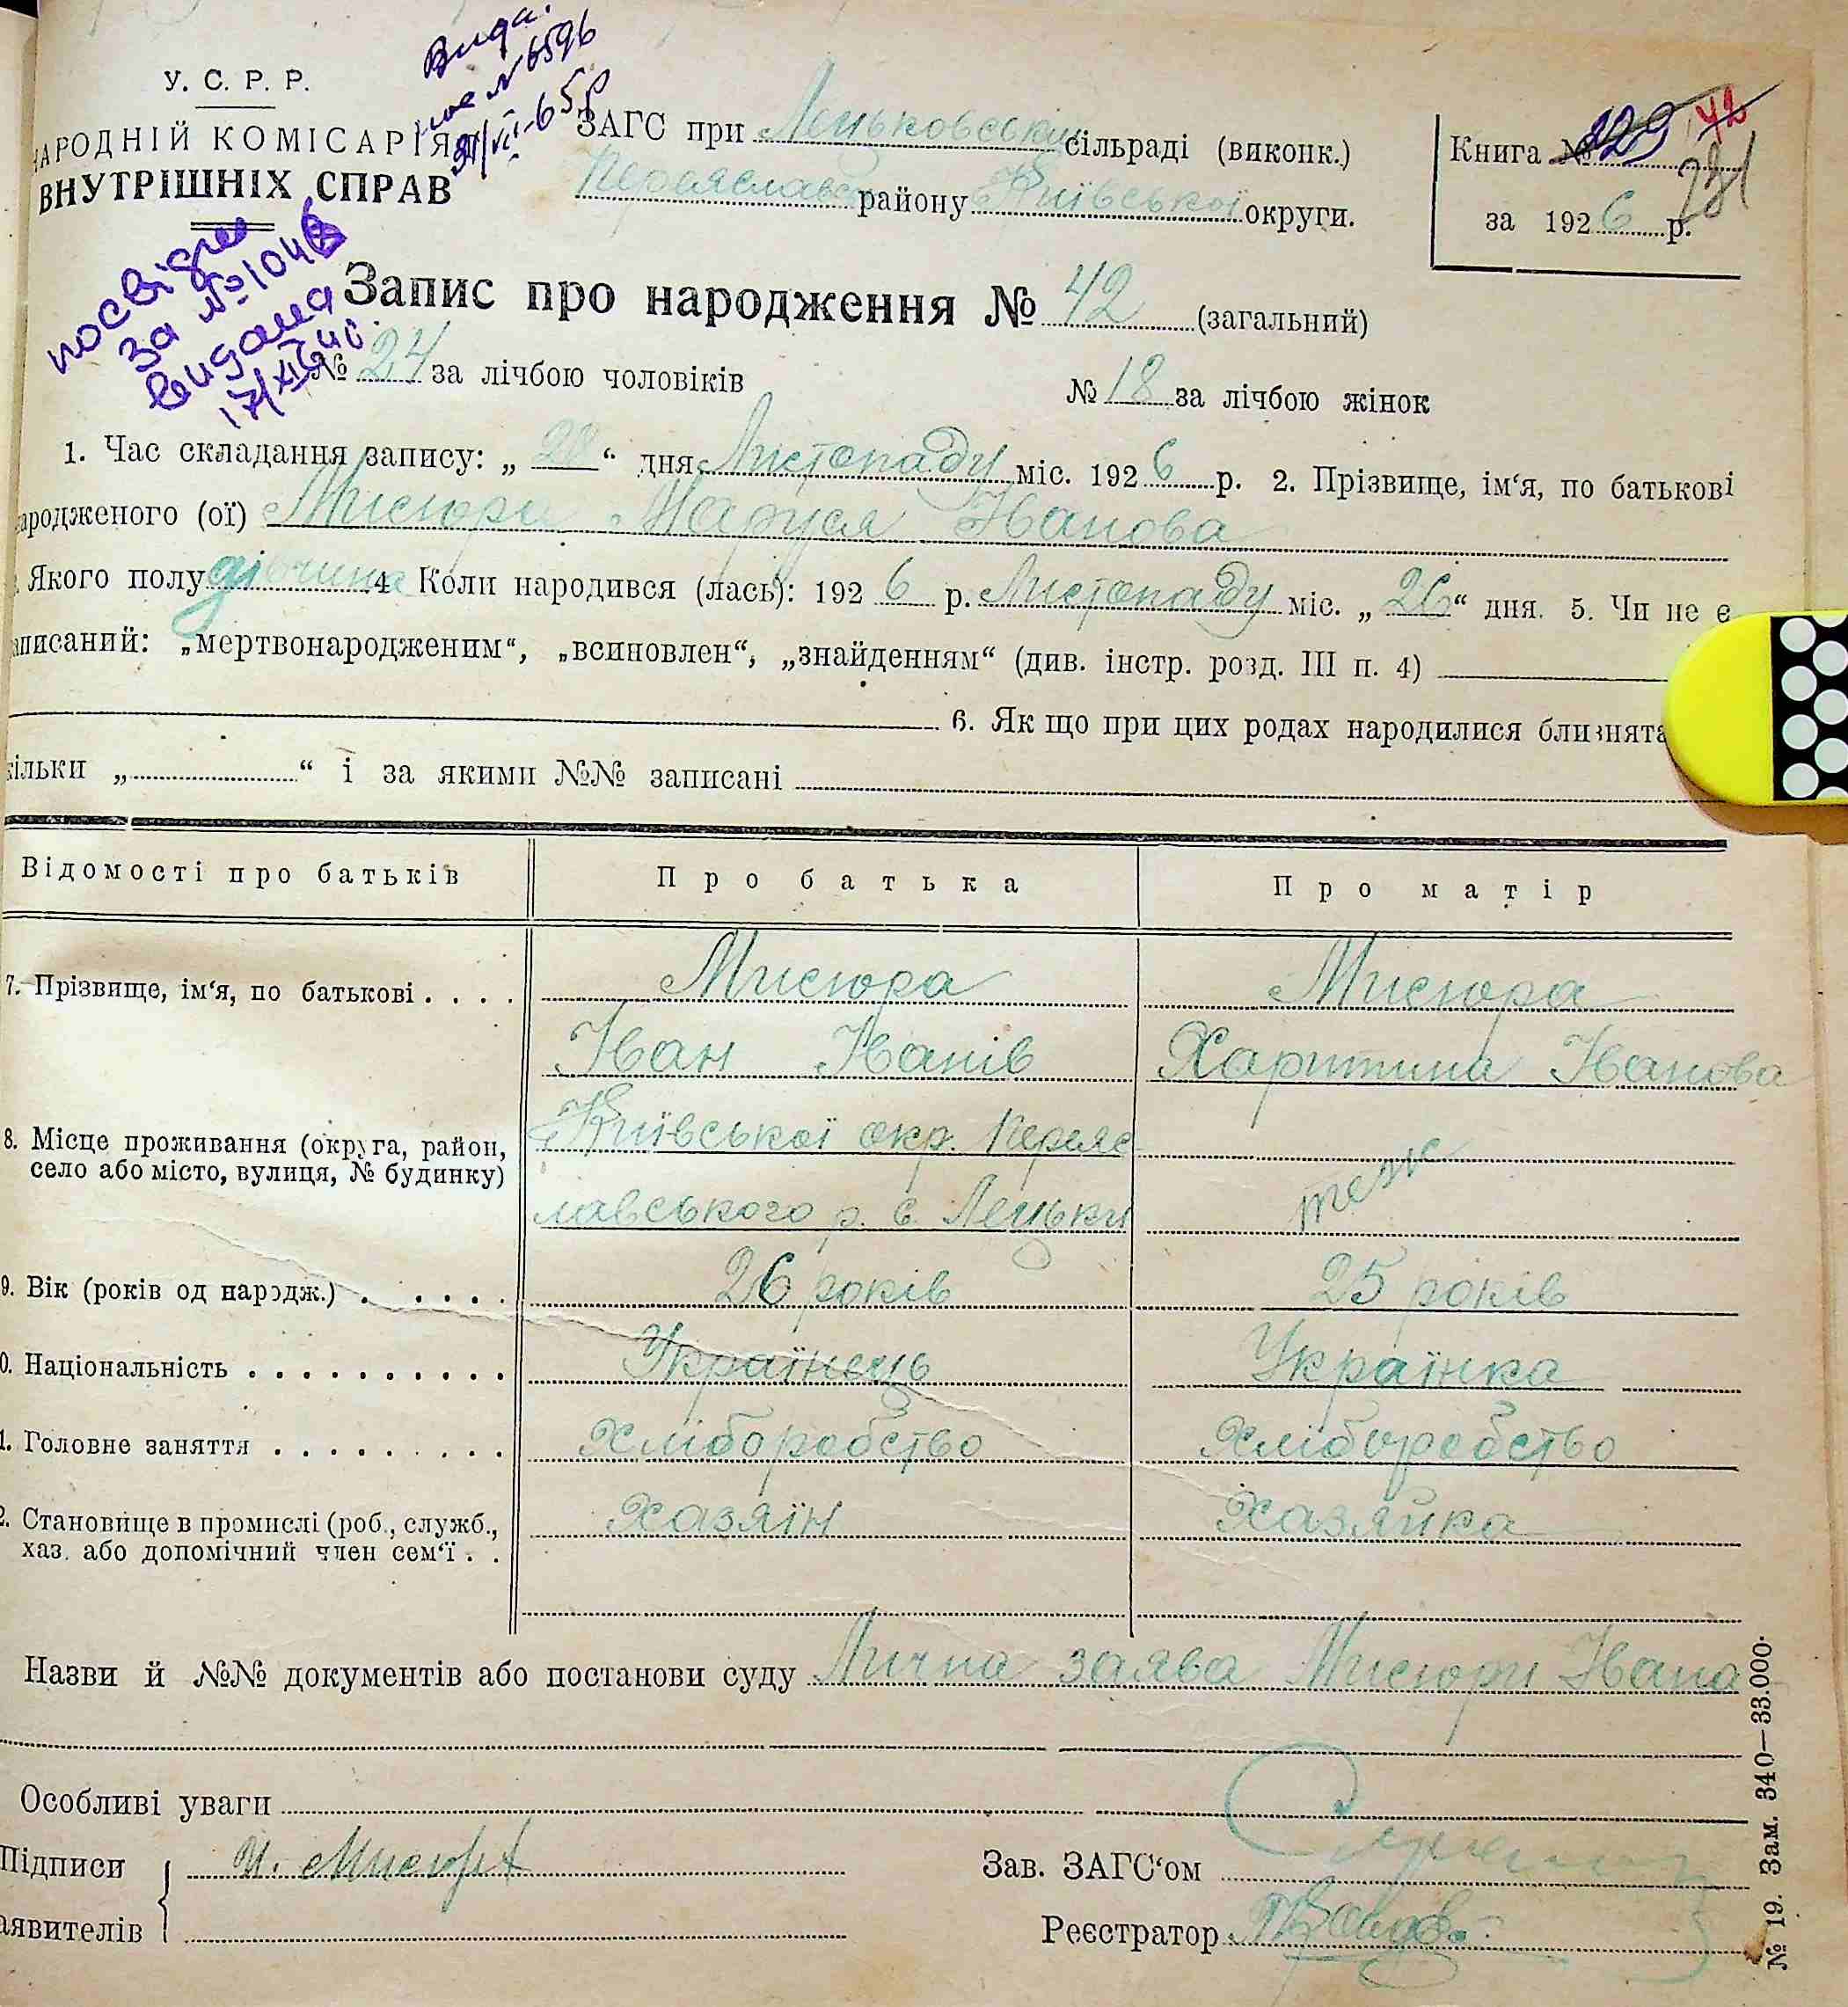 У. С. Р. Р.
НАРОДНІЙ КОМІСАРІЯТ
ВНУТРІШНІХ СПРАВ
ЗАГС при Леуьковській сільраді (виконк.)
Переяславс району Київської округи.
Книга № 129 42
281
за 1926 р.
Вида.
№ 6596
посвідче
за № 1046
видана
17/XII 40
Запис про народження № 42 (загальний)
№ 24 за лічбою чоловіків № 18 за лічбою жінок
1. Час складання запису: „ 28 “ дня Листопаду міс. 1926 р. 2. Прізвище, ім‘я, по батькові
народженого (ої) Мисюра Маруся Іванова
Якого полу дівчина 4 Коли народився (лась): 1926 р. Листопаду міс. „ 26 “ дня. 5. Чи не є
записаний: „мертвонародженим“, „всиновлен“, „знайденням“ (див. інстр. розд. III п. 4)
6. Як що при цих родах народилися близнята
кільки „ “ і за якими №№ записані
Відомості про батьків Про батька Про матір
7. Прізвище, ім‘я, по батькові . . . . Мисюра Мисюра
Іван Іванів Харитина Іванова
8. Місце проживання (округа, район, село або місто, вулиця, № будинку) Київської окр. Переяс
лавського р. с. Лецьки теж
9. Вік (років од народж.) . . . . . 26 років 25 років
0. Національність . . . . . . . . . . Українець Українка
1. Головне заняття . . . . . . . . . Хліборобство Хліборобство
2. Становище в промислі (роб., служб., Хазяїн Хазяйка
хаз. або допомічний член сем‘ї . .
Назви й №№ документів або постанови суду Лична заява Мисюри Івана
Особливі уваги
Підписи И. Мисюра
Зав. ЗАГС‘ом
заявителів
Реєстратор
№ 19. Зам. 340—33.000.